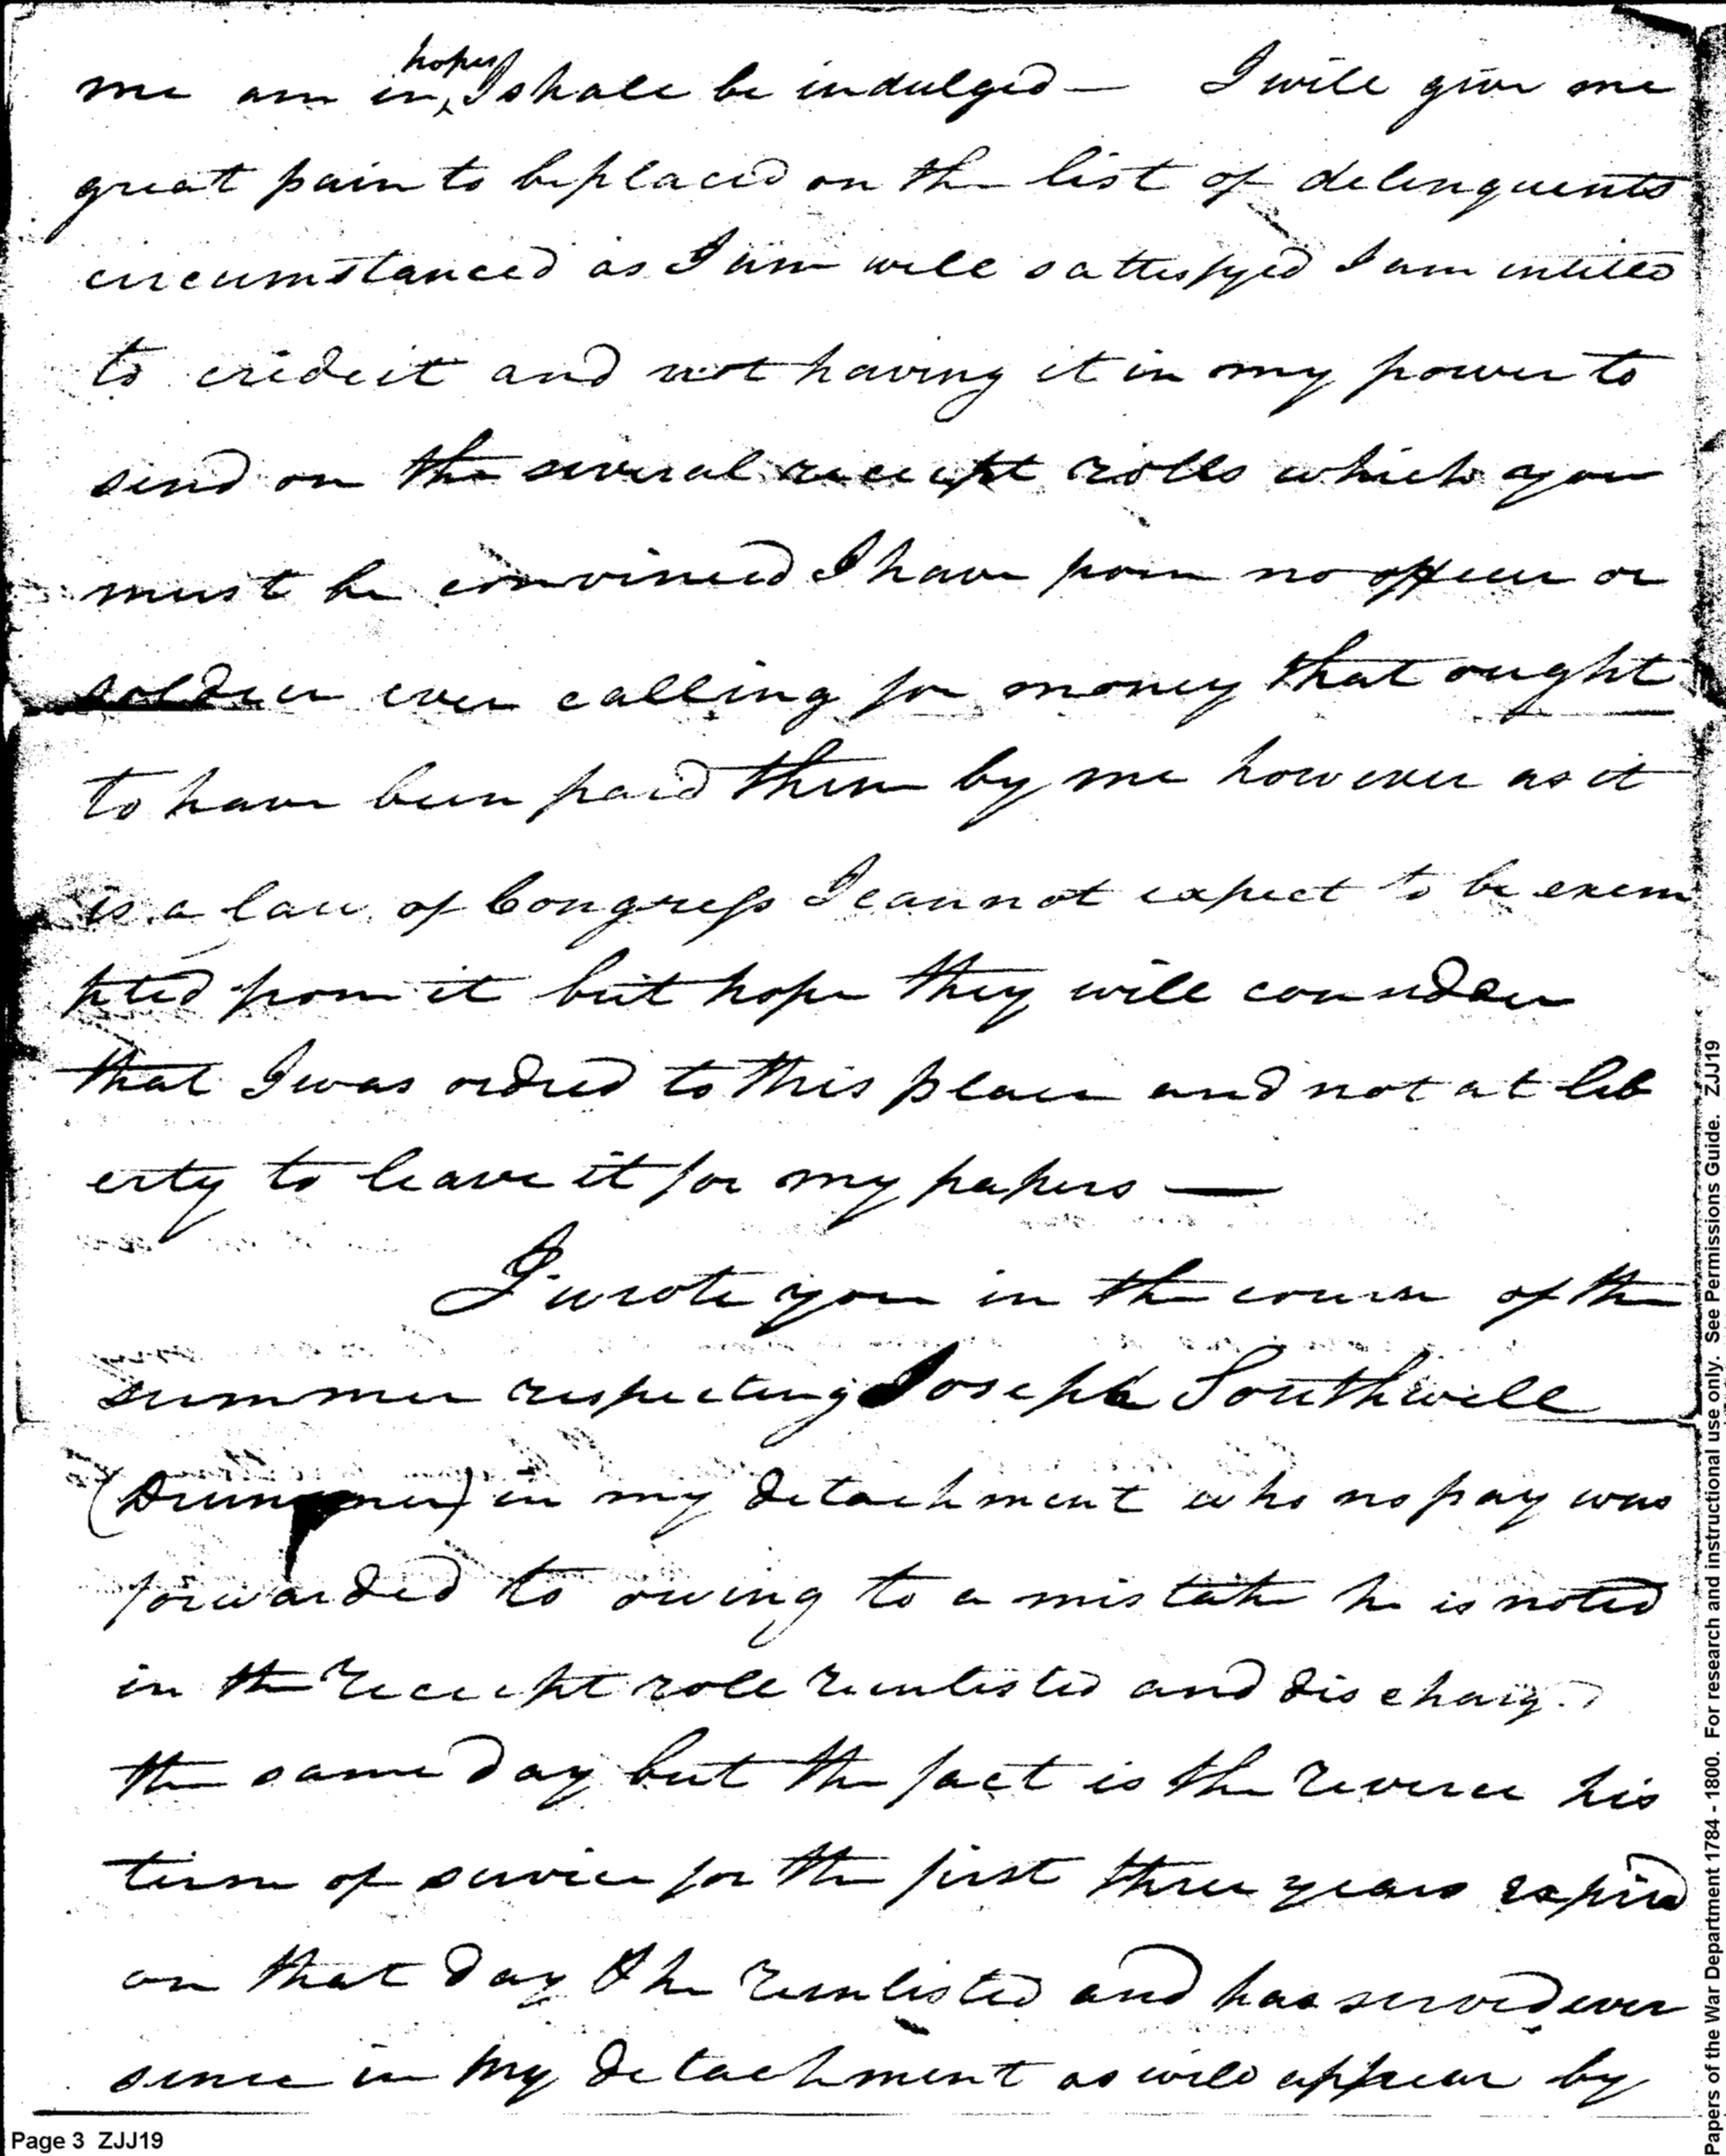 me am in hopes I shall be indulged — I will give me
great pain to be placed on the list of delinquents
circumstanced as I am well sattisfyed I am intitled
to credeit and not having it in my power to
send on the several receipt rolls which you
must be convinced I have from no officer or
soldier ever calling for money that ought
to have been paid them by me however as it
is a law of Congress I cannot expect to be exem
pted from it but hope they will consider
that I was ordred to this place and not at lib
erty to leave it for my papers —
I wrote you in the course of the
summer respecting Joseph Southwell
(Drummer) in my detachment who no pay was
forwarded to owing to a mistake he is noted
in the receipt role reenlisted and discharged
the same day but the fact is the reverce his
term of service for the first three years expired
on that day & he reenlisted and has served ever
since in my detachment as will appear by
Page 3 ZJJ19
Papers of the War Department 1784 - 1800. For research and instructional use only. See Permissions Guide. ZJJ19